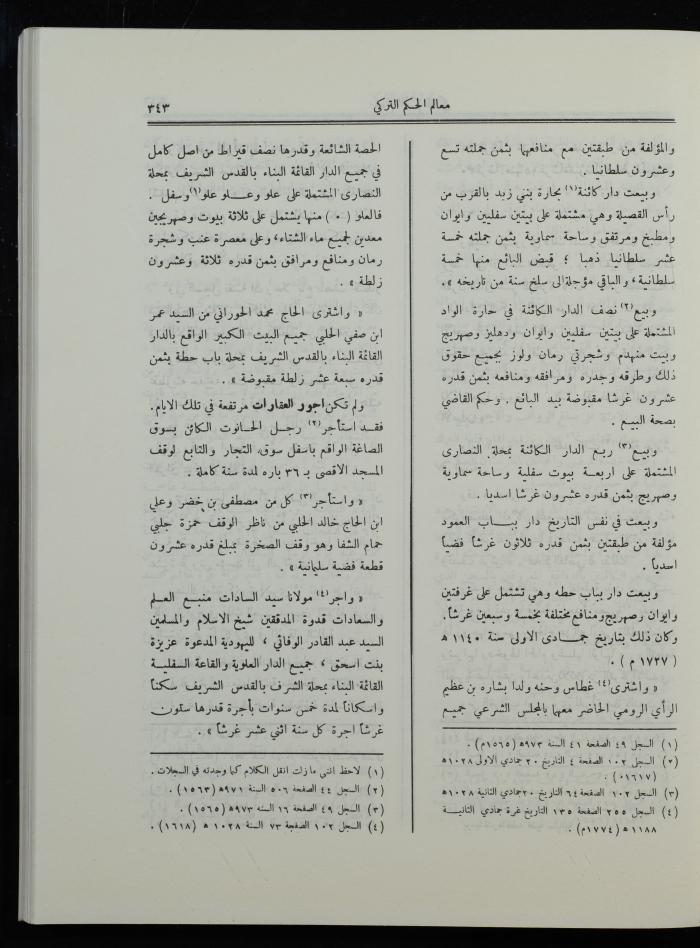 معالم الحكم التركي
٣٤٣
والمؤلفة من طبقتين مع منافعها بثمن جملته تسع
وعشرون سلطانيا .
وبيعت دار كائنة(١) بحارة بني زيد بالقرب من
رأس القصيلة وهي مشتملة على بيتين سفليين وايوان
ومطبخ ومرتفق وساحة سماوية بثمن جملته خمسة
عشر سلطانيا ذهبا ؛ قبض البائع منها خمسة
سلطانية، والباقي مؤجلة الى سلخ سنة من تاريخه ».
وبيع(٢) نصف الدار الكائنة في حارة الواد
المشتملة على بيتين سفليين وايوان ودهليز وصهريج
وبيت منهدم وشجرتي رمان ولوز بجميع حقوق
ذلك وطرقه وجدره ومرافقه ومنافعه بثمن قدره
عشرون غرشا مقبوضة بيد البائع . وحكم القاضي
بصحة البيع .
وبيع(٣) ربع الدار الكائنة بمحلة النصارى
المشتملة على اربعة بيوت سفلية وساحة سماوية
وصهريج بثمن قدره عشرون غرشا اسديا .
وبيعت في نفس التاريخ دار بباب العمود
مؤلفة من طبقتين بثمن قدره ثلاثون غرشاً فضياً
اسدياً .
وبيعت دار بباب حطه وهي تشتمل على غرفتين
وايوان وصهريج ومنافع مختلفة بخمسة وسبعين غرشاً.
وكان ذلك بتاريخ جمادى الاولى سنة ١١٤٠ ه
( ١٧٢٧ م ) .
« واشترى(٤) غطاس وحنه ولدا بشاره بن عظيم
الرأي الرومي الحاضر معها بالمجلس الشرعي جميع
(١) السجل ٤٩ الصفحة ٤١ السنة ٩٧٣ه (١٥٦٥م) .
(٢) السجل ١٠٢ الصفحة ٤ التاريخ ٢٠ جمادي الاولى ١٠٢٨ه
(١٦١٧م) .
(٣) السجل ١٠٢ الصفحة ٦٤ التاريخ ٢٠جمادي الثانية ١٠٢٨ه
(٤) السجل ٢٥٥ الصفحة ١٣٥ التاريخ غرة جمادي الثانيـة
١١٨٨ ه (١٧٧٤م) .
الحصة الشائعة وقدرها نصف قيراط من اصل كامل
في جميع الدار القائمة البناء بالقدس الشريف بمحلة
النصارى المشتملة على علو وعـلـو علو(١)وسفل .
فالعلو ( ٠ ) منها يشتمل على ثلاثة بيوت وصهريجين
معدين لجميع ماء الشتاء، وعلى معصرة عنب وشجرة
رمان ومنافع ومرافق بثمن قدره ثلاثة وعشرون
زلطة » .
« واشترى الحاج محمد الحوراني من السيد عمر
ابن صفي الحلبي جميع البيت الكبير الواقع بالدار
القائمة البناء بالقدس الشريف بمحلة باب حطة بثمن
قدره سبعة عشر زلطة مقبوضة » .
ولم تكن اجور العقارات مرتفعة في تلك الايام.
فقـد استأجر(٢) رجـل الحـانوت الكائن بسوق
الصاغة الواقع باسفل سوق التجار والتابع لوقف
المسجد الاقصى بـ ٣٦ باره لمدة سنة كاملة .
« واستأجر(٣) كل من مصطفى بن خضر وعلي
ابن الحاج خالد الحلبي من ناظر الوقف حمزة جلبي
حمام الشفا وهو وقف الصخرة بمبلغ قدره عشرون
قطعة فضية سليمانية » .
« واجر(٤) مولانا سيد السادات منبـع العلـم
والسعادات قدوة المدققين شيخ الاسلام والمسلمين
السيد عبد القادر الوفائي ، لليهودية المدعوة عزيزة
بنت اسحق ، جميع الدار العلوية والقاعة السفليـة
القائمة البناء بمحلة الشرف بالقدس الشريف سكناً
واسكاناً لمدة خمس سنوات بأجرة قدرها ستون
غرشاً اجرة كل سنة اثني عشر غرشاً » .
(١) لاحظ انني ما زلت انقل الكلام كما وجدته في السجلات .
(٢) السجل ٤٤ الصفحة ٥٠٦ السنة ٩٧١ه (١٥٦٣) .
(٣) السجل ٤٩ الصفحة ١٦ السنه ٩٧٣ه (١٥٦٥) .
(٤) السجل ١٠٢ الصفحة ٧٣ السنة ١٠٢٨ ه (١٦١٨) .